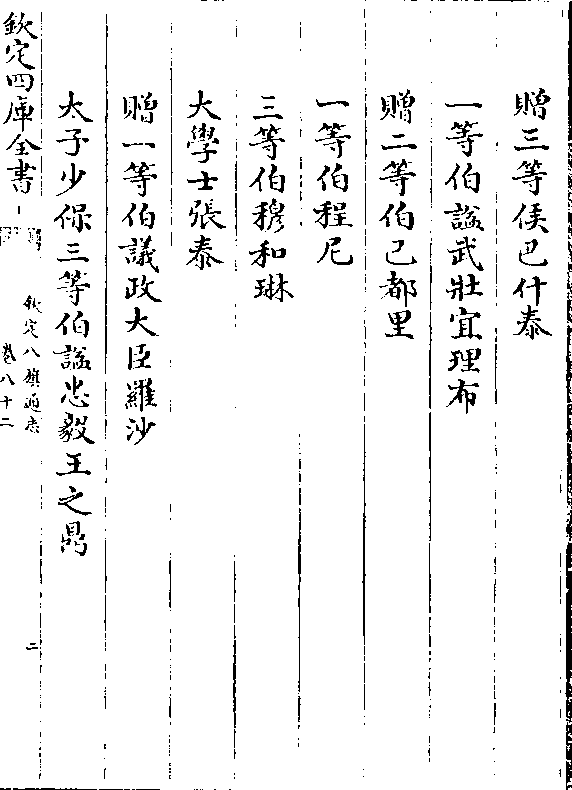 贈三等侯巴什泰
一等伯諡武壯宜理布
贈二等伯巴都里
一等伯程尼
三等伯穆和琳
大學士張泰
贈一等伯議政大臣羅沙
太子少保三等伯諡忠毅王之鼎
欽定四庫全書
欽定八旗通志
卷八十二
二